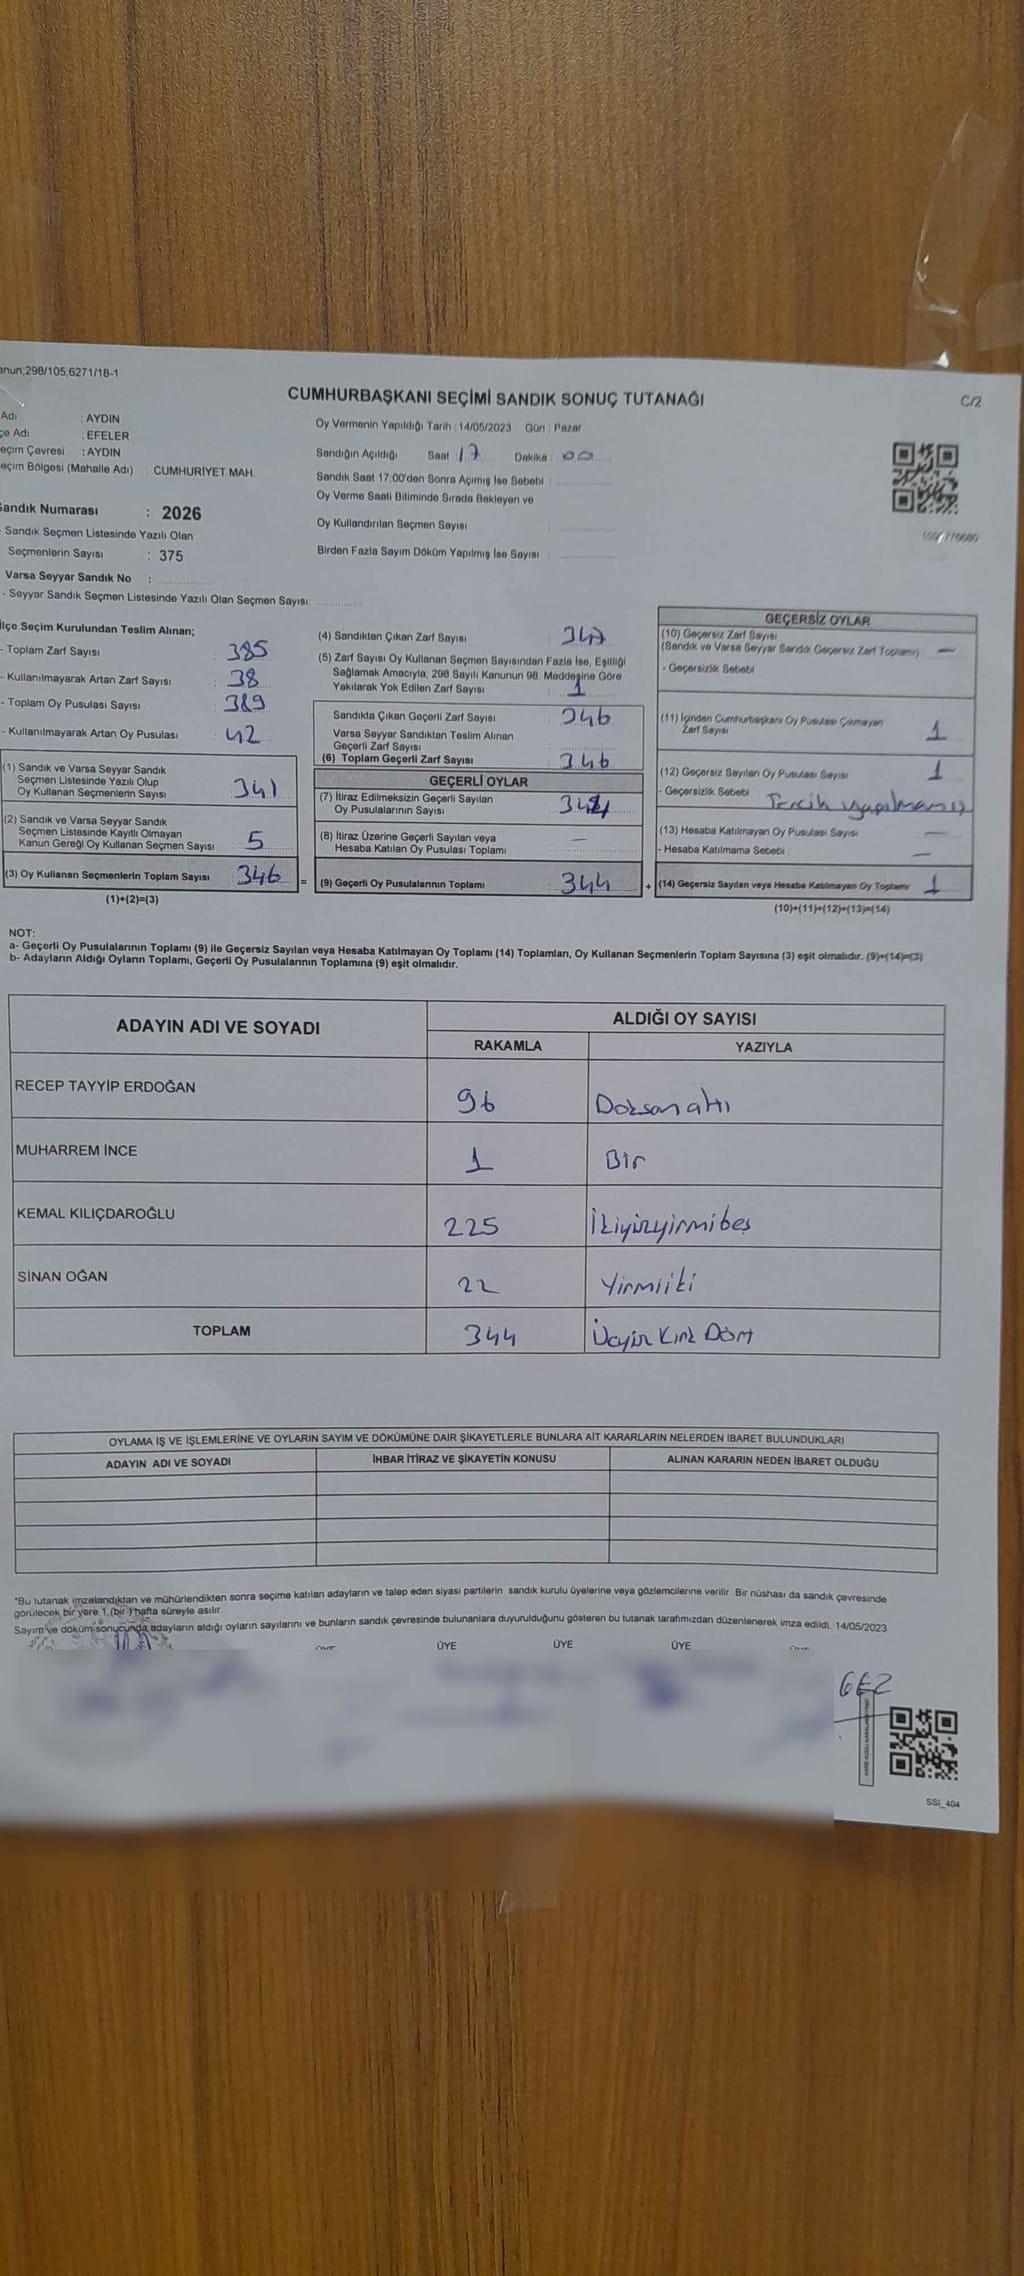 anun;298/105;6271/18-1
CUMHURBAŞKANI SEÇİMİ SANDIK SONUÇ TUTANAĞI
C/2
Adı : AYDIN
çe Adı : EFELER
eçim Çevresi : AYDIN
eçim Bölgesi (Mahalle Adı) : CUMHURİYET MAH.
Sandık Numarası : 2026
- Sandık Seçmen Listesinde Yazılı Olan
Seçmenlerin Sayısı : 375
Varsa Seyyar Sandık No :
- Seyyar Sandık Seçmen Listesinde Yazılı Olan Seçmen Sayısı:
Oy Vermenin Yapıldığı Tarih : 14/05/2023 Gün : Pazar
Sandığın Açıldığı Saat : 17 Dakika : 00
Sandık Saat 17:00'den Sonra Açımış İse Sebebi :
Oy Verme Saati Bitiminde Sırada Bekleyen ve
Oy Kullandırılan Seçmen Sayısı :
Birden Fazla Sayım Döküm Yapılmış İse Sayısı :
İlçe Seçim Kurulundan Teslim Alınan;
- Toplam Zarf Sayısı : 385
- Kullanılmayarak Artan Zarf Sayısı : 38
- Toplam Oy Pusulası Sayısı : 389
- Kullanılmayarak Artan Oy Pusulası : 42
(1) Sandık ve Varsa Seyyar Sandık
Seçmen Listesinde Yazılı Olup
Oy Kullanan Seçmenlerin Sayısı 341
(2) Sandık ve Varsa Seyyar Sandık
Seçmen Listesinde Kayıtlı Olmayan
Kanun Gereği Oy Kullanan Seçmen Sayısı : 5
(3) Oy Kullanan Seçmenlerin Toplam Sayısı : 346 =
(1)+(2)=(3)
(4) Sandıktan Çıkan Zarf Sayısı : 347
(5) Zarf Sayısı Oy Kullanan Seçmen Sayısından Fazla İse, Eşitliği
Sağlamak Amacıyla; 298 Sayılı Kanunun 98. Maddesine Göre
Yakılarak Yok Edilen Zarf Sayısı : 1
Sandıkta Çıkan Geçerli Zarf Sayısı : 346
Varsa Seyyar Sandıktan Teslim Alınan
Geçerli Zarf Sayısı :
(6) Toplam Geçerli Zarf Sayısı : 346
GEÇERLİ OYLAR
(7) İtiraz Edilmeksizin Geçerli Sayılan
Oy Pusulalarının Sayısı : 344
(8) İtiraz Üzerine Geçerli Sayılan veya
Hesaba Katılan Oy Pusulası Toplamı : —
(9) Geçerli Oy Pusulalarının Toplamı : 344 +
GEÇERSİZ OYLAR
(10) Geçersiz Zarf Sayısı
(Sandık ve Varsa Seyyar Sandık Geçersiz Zarf Toplamı) : —
- Geçersizlik Sebebi
(11) İçinden Cumhurbaşkanı Oy Pusulası Çıkmayan
Zarf Sayısı 1
(12) Geçersiz Sayılan Oy Pusulası Sayısı 1
- Geçersizlik Sebebi : Tercih yapılmamış
(13) Hesaba Katılmayan Oy Pusulası Sayısı —
- Hesaba Katılmama Sebebi : —
(14) Geçersiz Sayılan veya Hesaba Katılmayan Oy Toplamı 1
(10)+(11)+(12)+(13)=(14)
NOT:
a- Geçerli Oy Pusulalarının Toplamı (9) ile Geçersiz Sayılan veya Hesaba Katılmayan Oy Toplamı (14) Toplamları, Oy Kullanan Seçmenlerin Toplam Sayısına (3) eşit olmalıdır. (9)+(14)=(3)
b- Adayların Aldığı Oyların Toplamı, Geçerli Oy Pusulalarının Toplamına (9) eşit olmalıdır.
ADAYIN ADI VE SOYADI
ALDIĞI OY SAYISI
RAKAMLA YAZIYLA
RECEP TAYYİP ERDOĞAN 96 Doksanaltı
MUHARREM İNCE 1 Bir
KEMAL KILIÇDAROĞLU 225 İkiyüzyirmibeş
SİNAN OĞAN 22 Yirmiiki
TOPLAM 344 Üçyüz Kırk Dört
OYLAMA İŞ VE İŞLEMLERİNE VE OYLARIN SAYIM VE DÖKÜMÜNE DAİR ŞİKAYETLERLE BUNLARA AİT KARARLARIN NELERDEN İBARET BULUNDUKLARI
ADAYIN ADI VE SOYADI İHBAR İTİRAZ VE ŞİKAYETİN KONUSU ALINAN KARARIN NEDEN İBARET OLDUĞU
*Bu tutanak imzalandıktan ve mühürlendikten sonra seçime katılan adayların ve talep eden siyasi partilerin sandık kurulu üyelerine veya gözlemcilerine verilir. Bir nüshası da sandık çevresinde
görülecek bir yere 1 (bir) hafta süreyle asılır.
Sayım ve döküm sonucunda adayların aldığı oyların sayılarını ve bunların sandık çevresinde bulunanlara duyurulduğunu gösteren bu tutanak tarafımızdan düzenlenerek imza edildi. 14/05/2023
ÜYE ÜYE ÜYE
GEZ
SSI_404